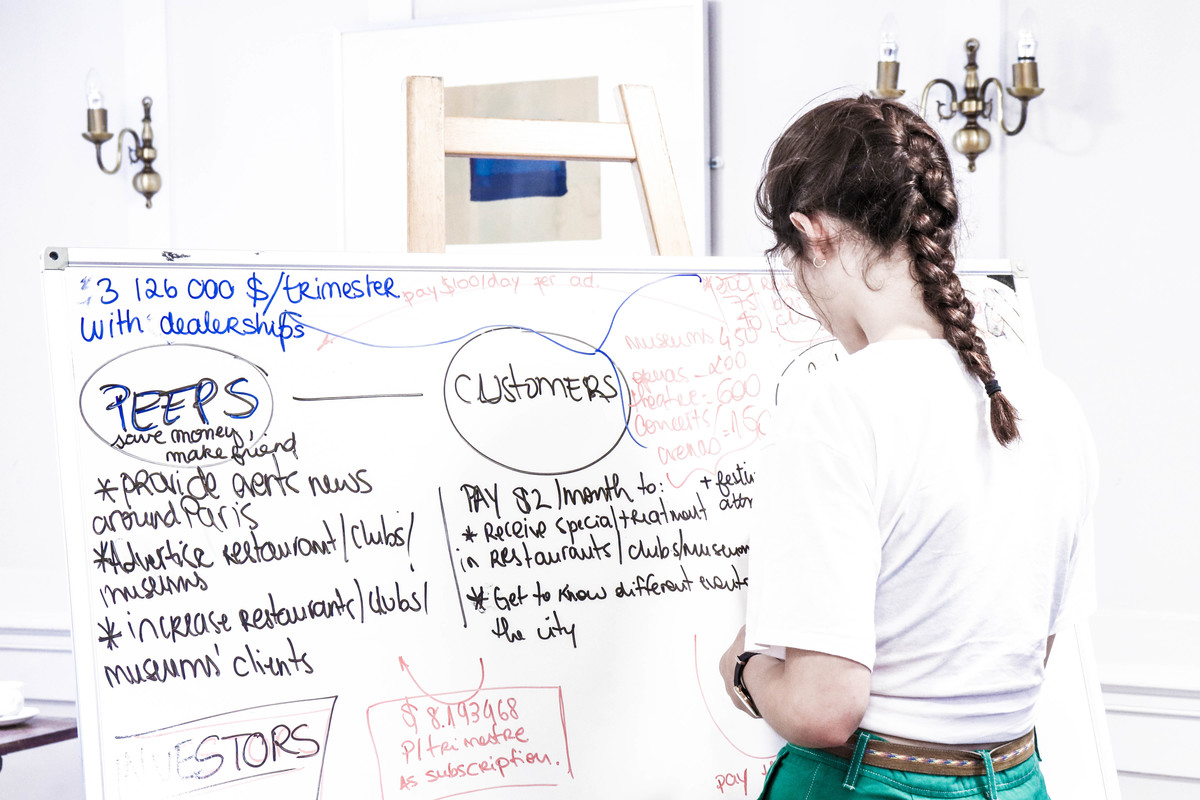 3 126 000 $/trimester
with dealerships
pay $100/day per ad.
PEEPS
save money,
make friend
* provide events news
around Paris
* Advertise restaurant/clubs/
museums
* increase restaurants/clubs/
museums' clients
CUSTOMERS
museums 450
operas - 200
theatre = 600
concerts/
arenas = 150
PAY $2/month to:
* Receive special treatment
in Restaurants/clubs/museum
* Get to know different events
the city
+ festi
attr
INVESTORS
$ 8.193968
P/trimestre
as subscription.
pay